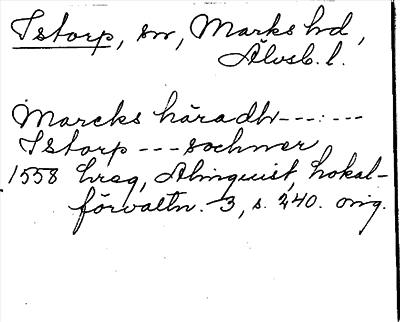 Istorp, sn, Marks hd,
Älvsb. l.
Marcks häradh --- : ---
Istorp --- sochner
1558 hreg, Almquist, Lokal-
förvaltn. 3, s. 240. orig.